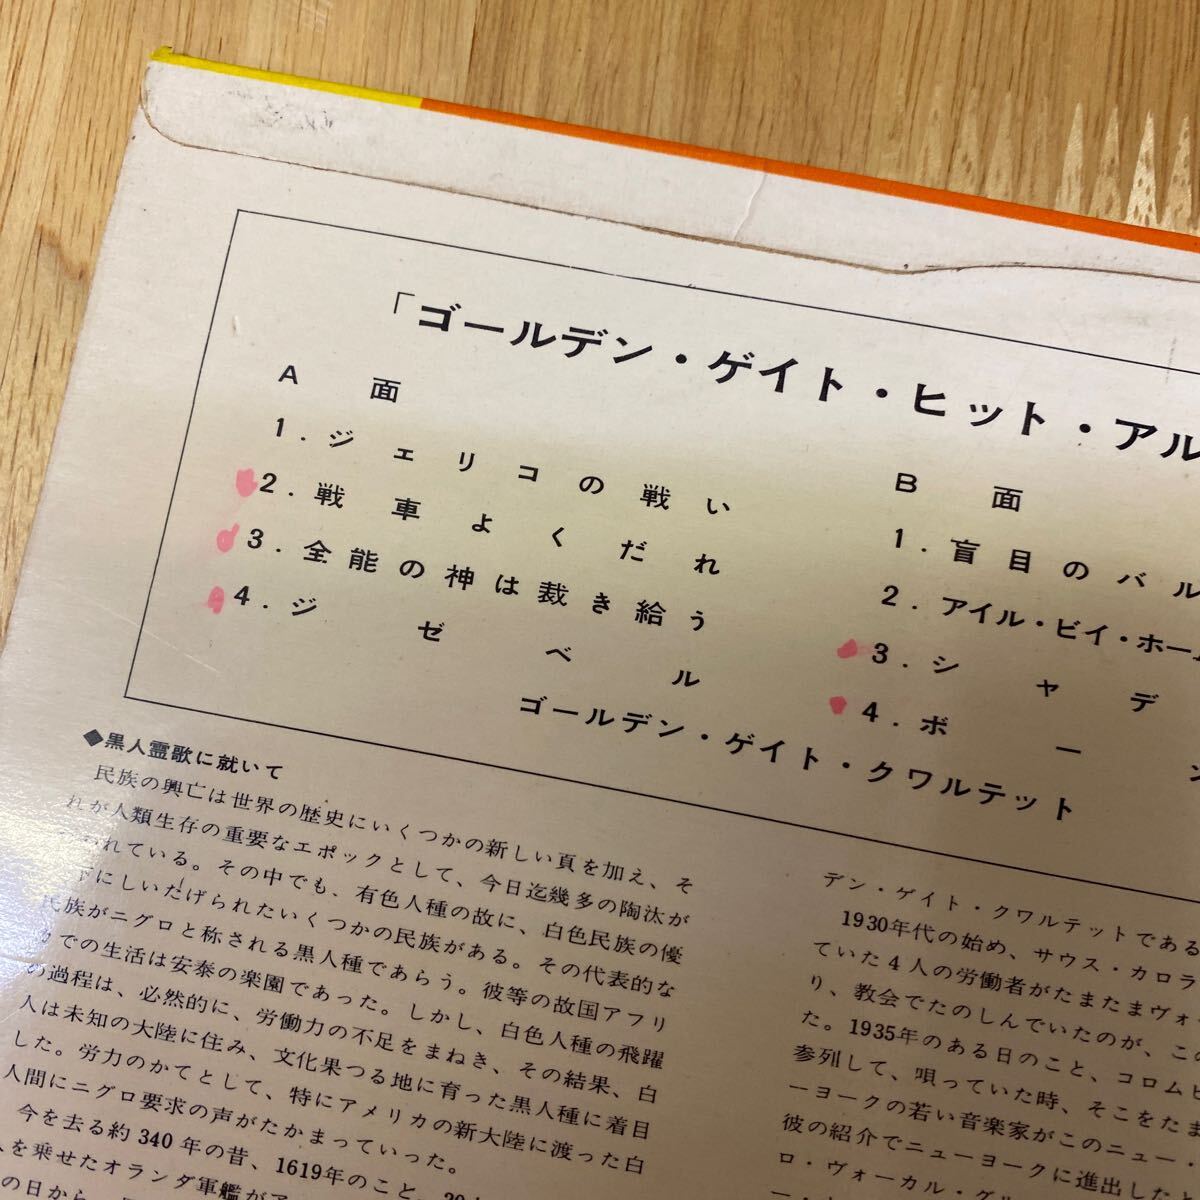 「ゴールデン・ゲイト・ヒット・アル
A 面
1．ジェリコの戦い
2．戦車よくだれ
3．全能の神は裁き給う
4．ジゼベル
B 面
1．盲目のバル
2．アイル・ビイ・ホーム
3．シャデ
4．ボーン
ゴールデン・ゲイト・クワルテット
◆黒人霊歌に就いて
民族の興亡は世界の歴史にいくつかの新しい頁を加え、そ
れが人類生存の重要なエポックとして、今日迄幾多の陶汰が
られている。その中でも、有色人種の故に、白色民族の優
下にしいたげられたいくつかの民族がある。その代表的な
民族がニグロと称される黒人種であらう。彼等の故国アフリ
カでの生活は安泰の楽園であった。しかし、白色人種の飛躍
の過程は、必然的に、労働力の不足をまねき、その結果、白
人は未知の大陸に住み、文化果つる地に育った黒人種に着目
した。労力のかてとして、特にアメリカの新大陸に渡った白
人間にニグロ要求の声がたかまっていった。
今を去る約 340 年の昔、1619年のこと、20
人を乗せたオランダ軍艦がア
の日から、
デン・ゲイト・クワルテットである
1930年代の始め、サウス・カロラ
ていた 4 人の労働者がたまたまヴォ
り、教会でたのしんでいたのが、この
た。1935年のある日のこと、コロムビ
参列して、唄っていた時、そこをたま
ーヨークの若い音楽家がこのニュー・
彼の紹介でニューヨークに進出した
ロ・ヴォーカル・グル